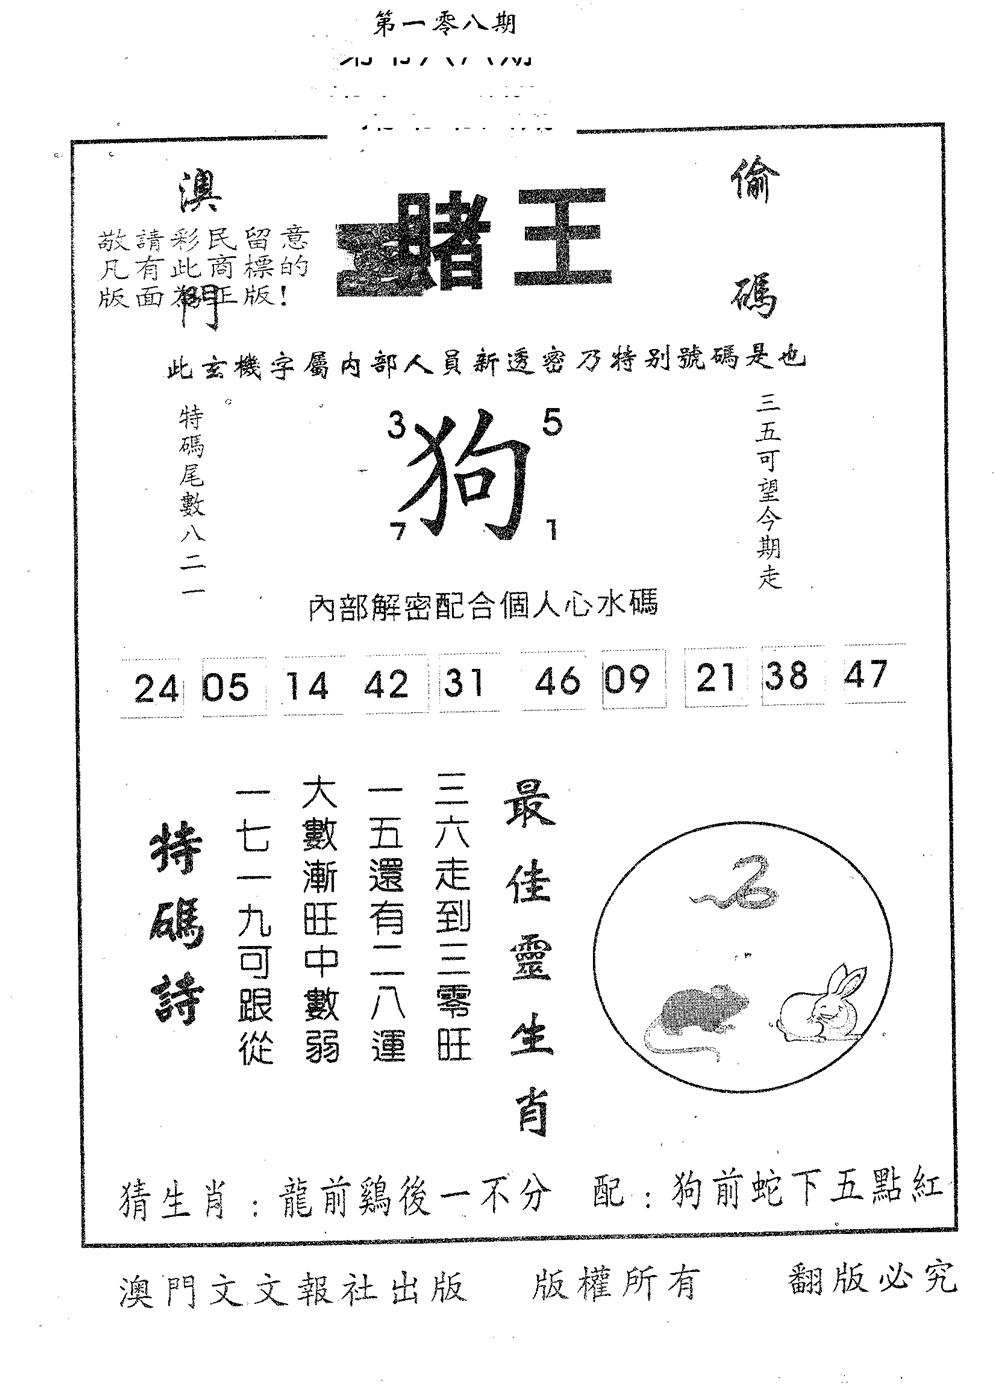 第一零八期
澳門
賭王
偷碼
敬請彩民留意
凡有此商標的
版面為正版!
此玄機字屬内部人員新透密乃特别號碼是也
特碼尾數八二一
3
5
狗
7
1
三五可望今期走
內部解密配合個人心水碼
24 05 14 42 31 46 09 21 38 47
最佳靈生肖
三六走到三零旺
一五還有二八運
大數漸旺中數弱
一七一九可跟從
特碼詩
猜生肖:龍前鷄後一不分 配:狗前蛇下五點紅
澳門文文報社出版 版權所有 翻版必究